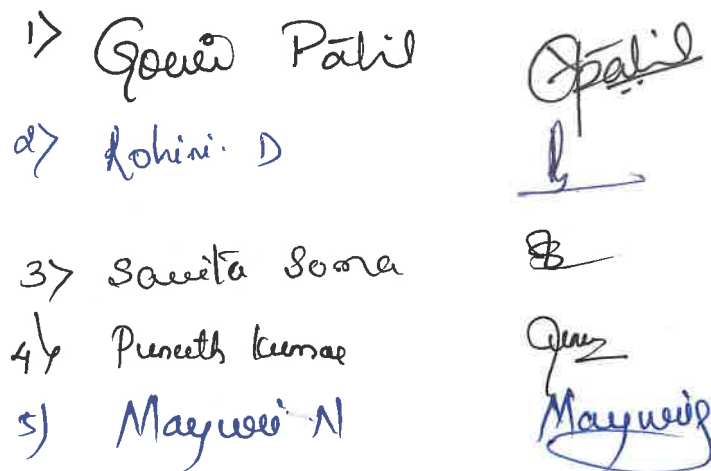 1) Gouri Patil Gpatil
2) Rohini. D
3) Savita Soma
4) Puneeth Kumar
5) Mayuri N Mayuri